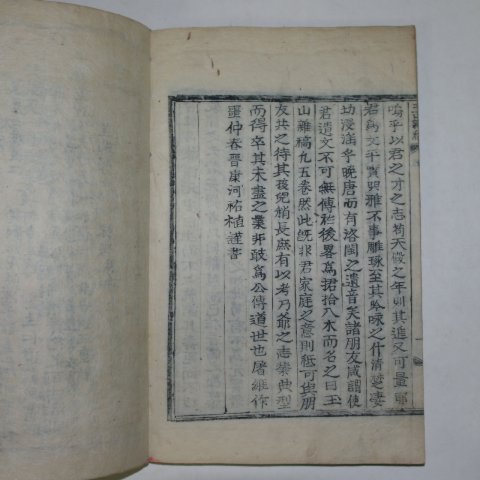 嗚乎以君之才之志苟天假之年則其進又可量耶
君爲文乎實典雅不事雕琢至其吟咏之什清楚凄
切浸淫乎晚唐而有洛閩之遺音矣諸朋友咸謂使
君遺文不可無傳於後畧爲捃拾入木而名之曰玉
山雜稿凡五卷然此旣非君家庭之意則秪可與朋
友共之待其孩兒稍長庶有以考乃爺之志業典型
而得卒其未盡之業非敢爲公傳道世也屠維作
噩仲春晋康河祐植謹書